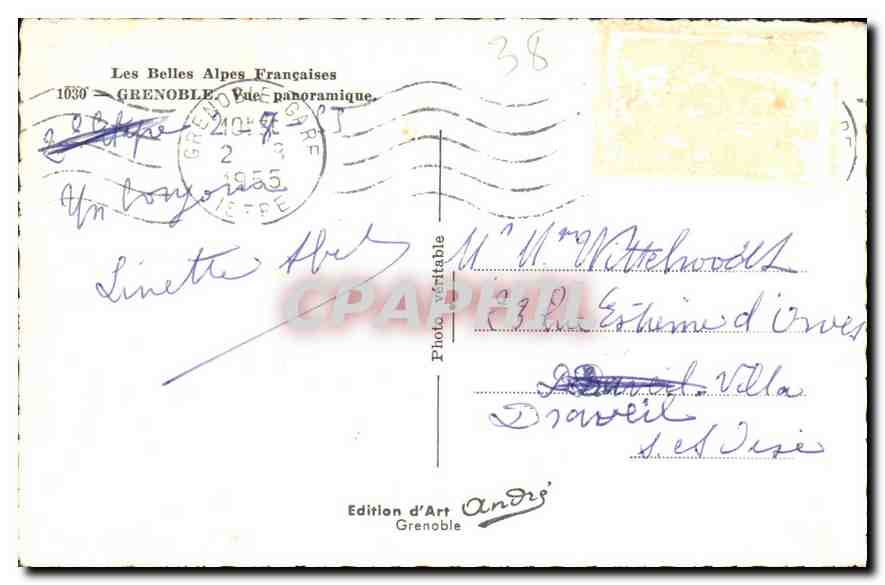 38
Les Belles Alpes Françaises
1030 — GRENOBLE. Vue panoramique.
GRENOBLE GARE
2 - 8
1955
ISERE
Un bonjour
Linette Abel
Photo véritable
CPAPHIL
Mr Mme Wittelwoodt
23 Rue Estienne d'Orves
Villa
Draveil
S. et Oise
Edition d'Art André
Grenoble